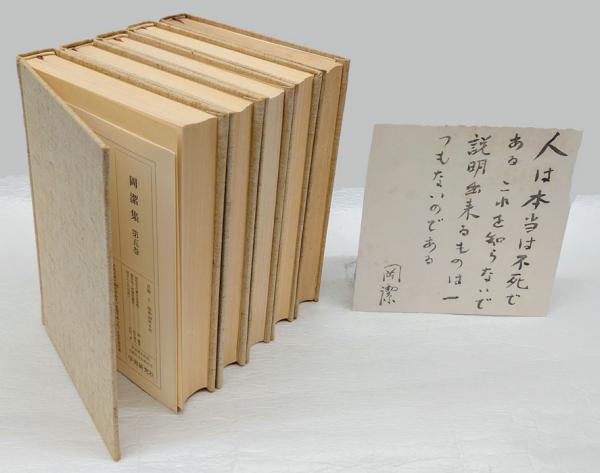 人は本当は不死で
ある これを知らないで
説明出来るものは一
つもないのである
岡潔
岡潔集 第五巻
学習研究社